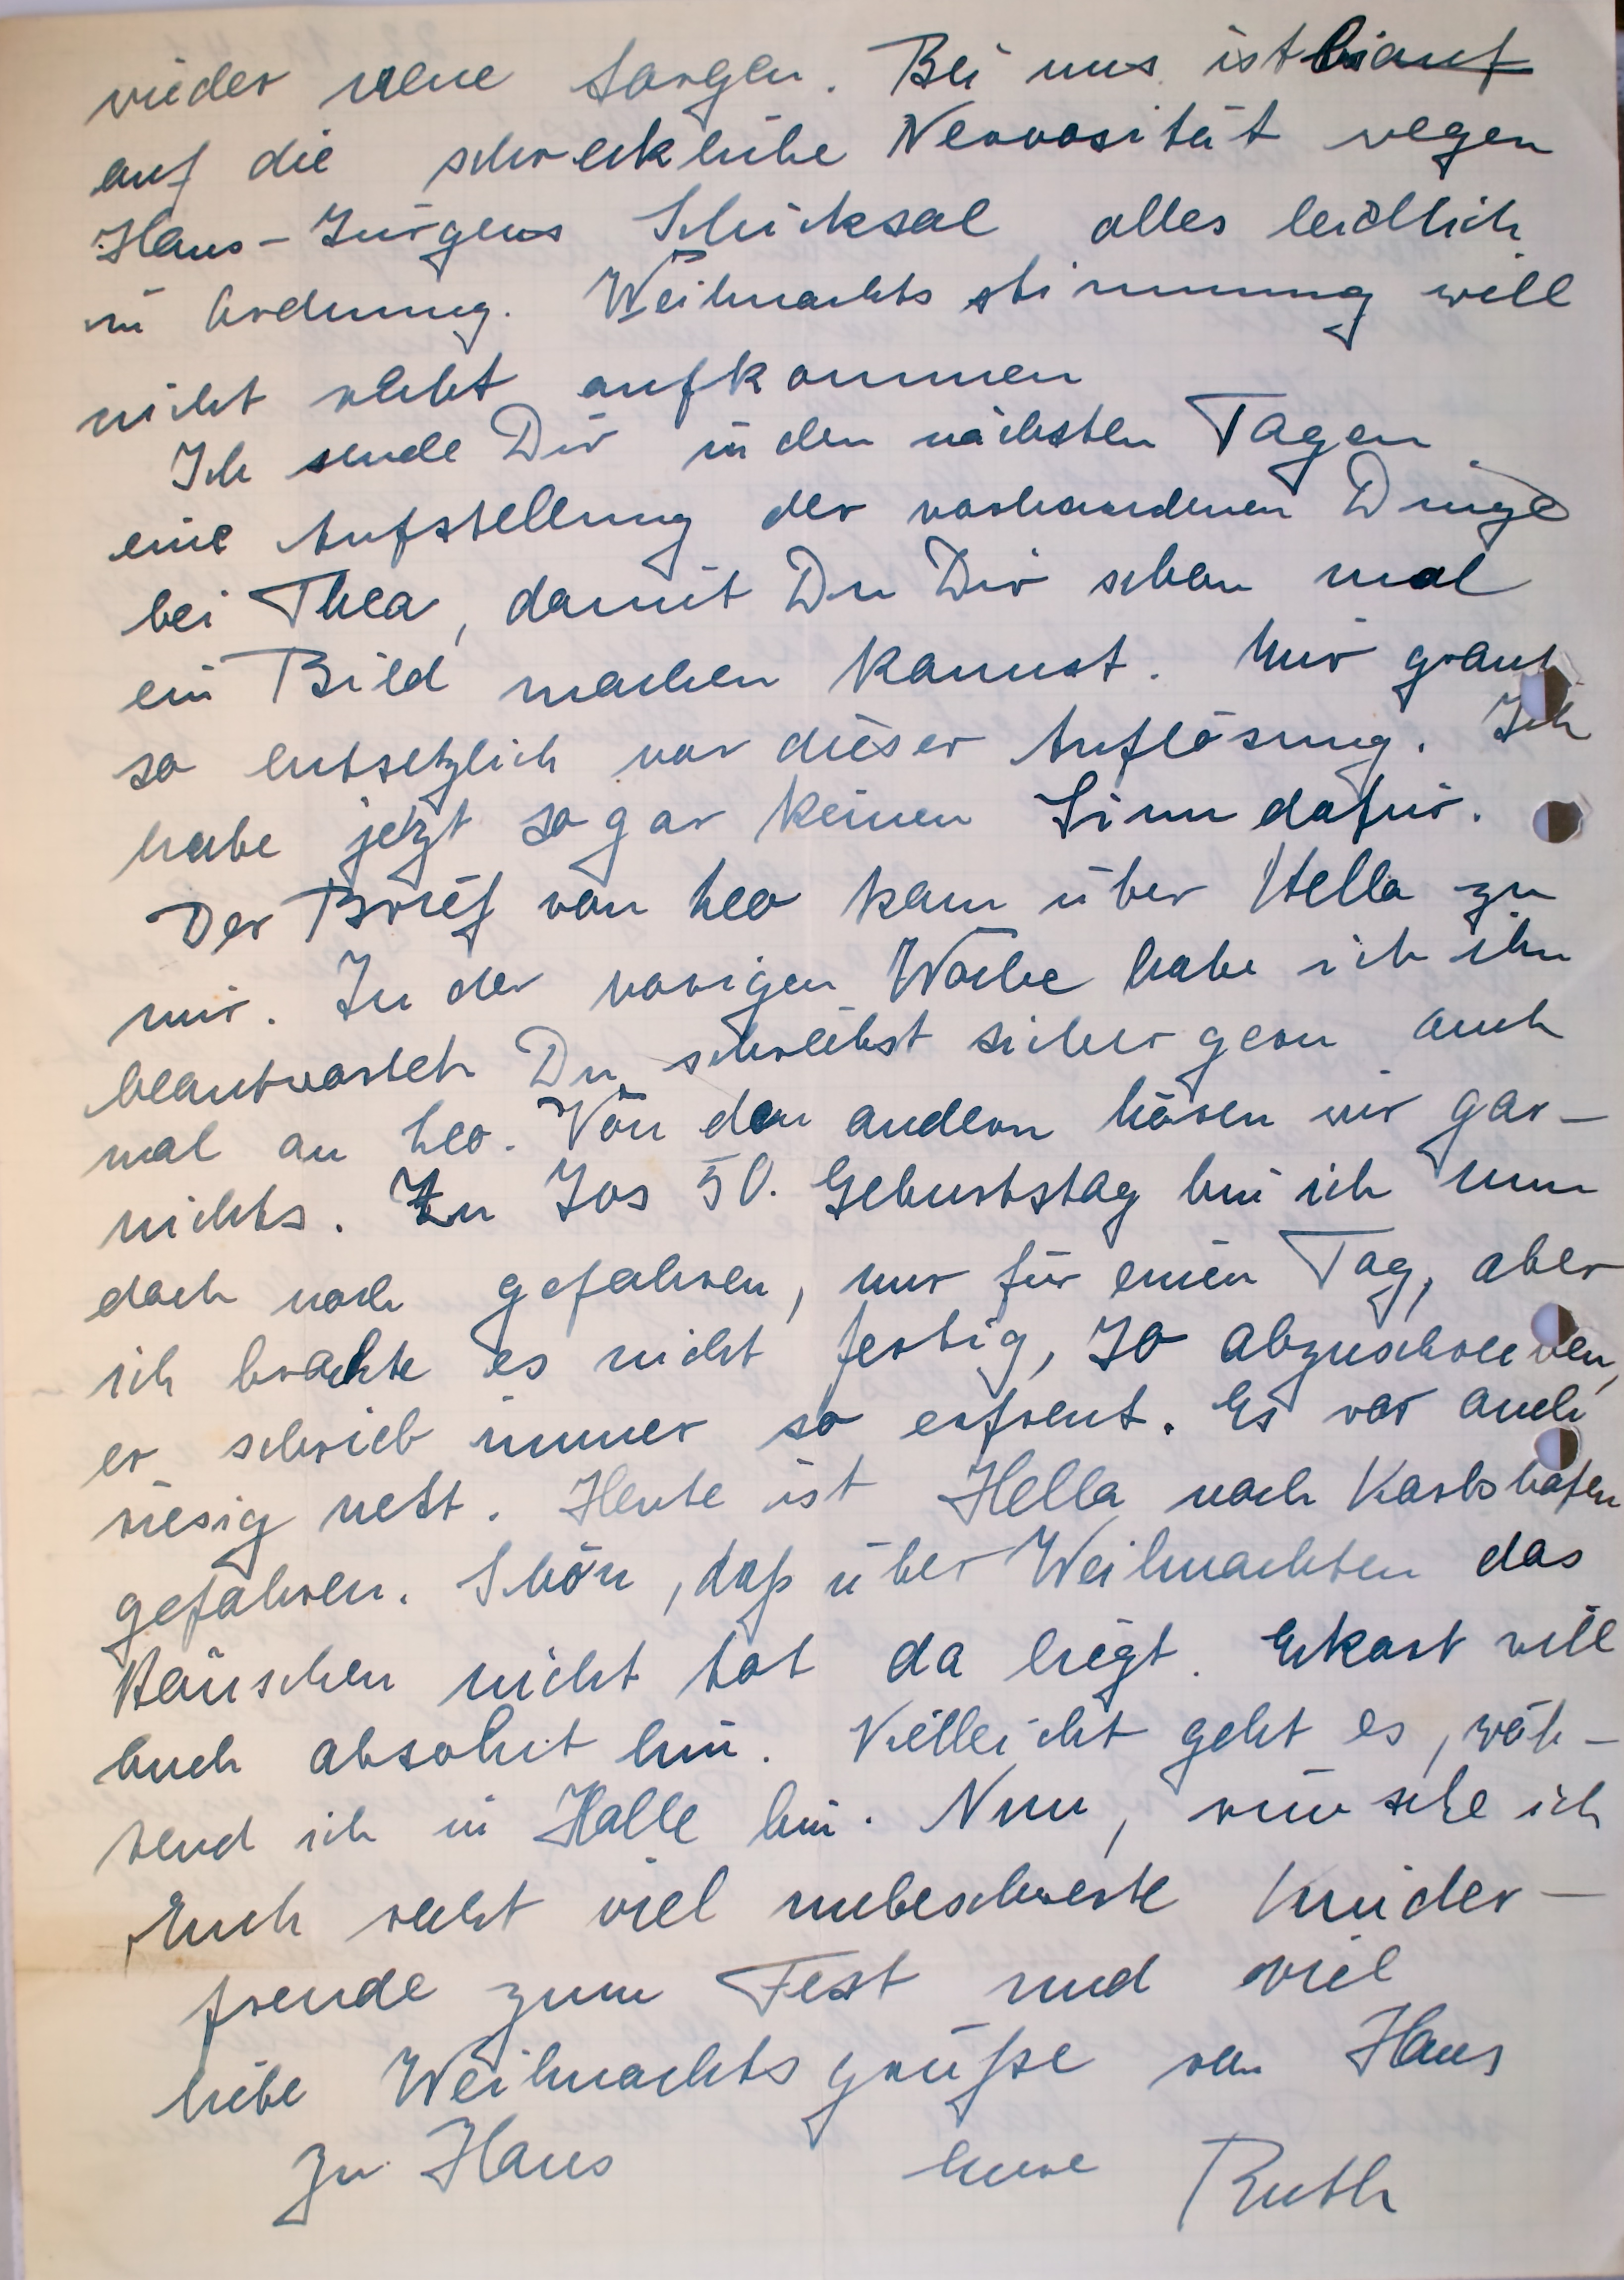 wieder neue Sorgen. Bei uns ist bis auf
auf die schreckliche Nervosität wegen
Hans-Jürgens Schicksal alles leidlich
in Ordnung. Weihnachtsstimmung will
nicht recht aufkommen
Ich sende Dir in den nächsten Tagen
eine Aufstellung der vorhandenen Dinge
bei Thea, damit Du Dir schon mal
ein Bild machen kannst. Mir graut
so entsetzlich vor dieser Auflösung. Ich
habe jetzt so gar keinen Sinn dafür.
Der Brief von Leo kam über Hella zu
mir. In der vorigen Woche habe ich ihn
beantwortet. Du schreibst sicher gern auch
mal an Leo. Von den andern hören wir gar-
nichts. Zu Jos 50. Geburtstag bin ich nun
doch noch gefahren, nur für einen Tag, aber
ich brachte es nicht fertig, Jo abzuschreiben,
er schrieb immer so erfreut. Es war auch
riesig nett. Heute ist Hella nach Karlshafen
gefahren. Schön, daß über Weihnachten das
Häuschen nicht tot da liegt. Ekart will
auch absolut hin. Vielleicht geht es, wäh-
rend ich in Halle bin. Nun, wünsche ich
Euch recht viel unbeschwerte Kinder-
freude zum Fest und viel
liebe Weihnachtsgrüße von Haus
zu Haus Eure Ruth